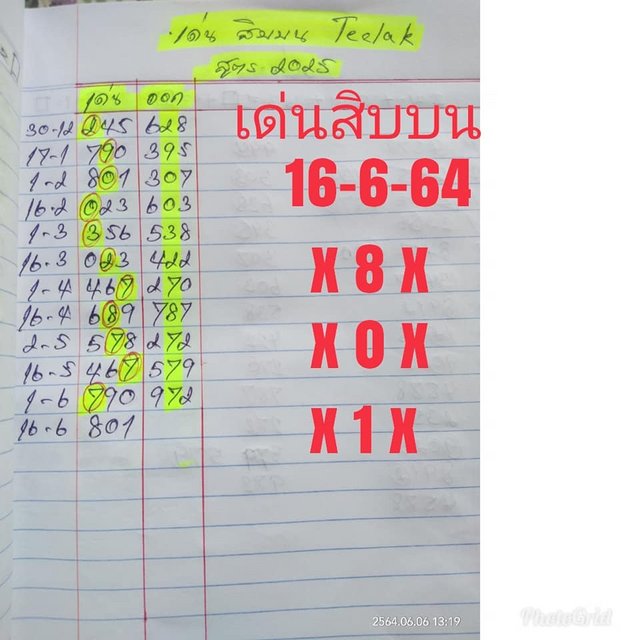 เด่น สิบบน Teelak
สูตร 2025
เด่น ออก
30-12 245 628
17-1 790 395
1-2 801 307
16-2 023 603
1-3 356 538
16-3 023 422
1-4 467 270
16-4 689 787
2-5 578 272
16-5 467 579
1-6 790 972
16-6 801
เด่นสิบบน
16-6-64
X 8 X
X 0 X
X 1 X
2564.06.06 13:19
PhotoGrid